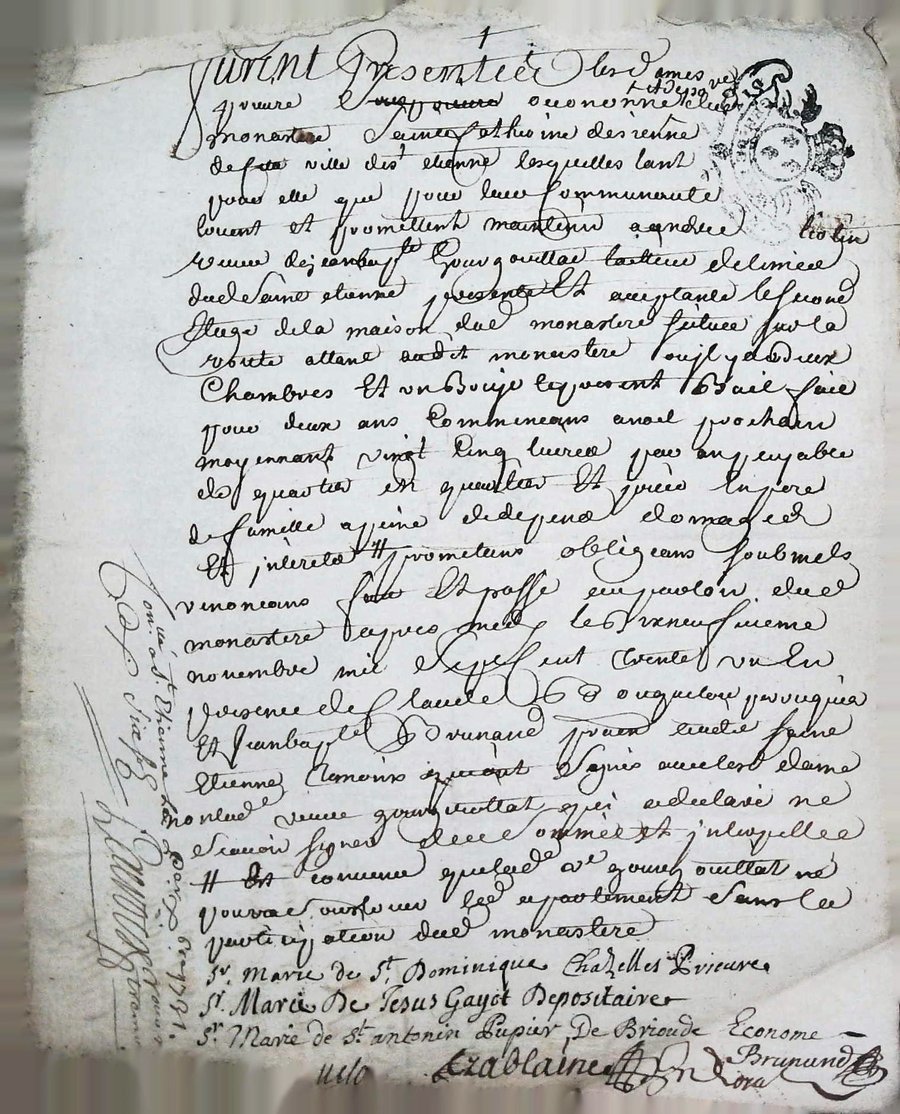 furent Presentées les dames
prieure et depositre
Souprieure oeconome du
monastere Sainte Catherine de sienne
de ville de st etienne lesquelles tant
pour elle que pour leur Communauté
louent et promettent maintenir a andrée liotin
veuve de jean bapte Gourgouillat tailleur de limes
dud Saint etienne presente Et acceptante le second
Etage de la maison dud monastere scituée sur la
route attenant audit monastere ou il y a deux
Chambres Et un Bouje le present Bail fait
pour deux ans Commencans a noel prochain
moyennant vingt Cinq livres par an payable
de quartier en quartier Et
de famille a peine de depens domages
Et jnterets # prometans obligeans soubmets
renonceans fait Et passé au parloir dud
monastere apres midy le dixneufvieme
novembre mil Sept Cent trente un En
presence de Claude perruquier
Et Jean bapte Brunand pratn dudit Saint
Etienne temoins qui ont Signés avec les d dames
non lad veuve gourgouillat qui a declaré ne
Scavoir signer de ce Sommée et jnterpellée
# Et convenu que lade ve gourgouillat ne
pourra led apartement Sans la
participation dud monastere
Sr. Marie de St. Dominique Chazelles Prieure
Sr. Marie De Jesus Gayot Depositaire
Sr. Marie de St antonin Pupier De Brioude Econome
Brunand
Ezablaine
Conlé a St Etienne le 1731
Reçu six s